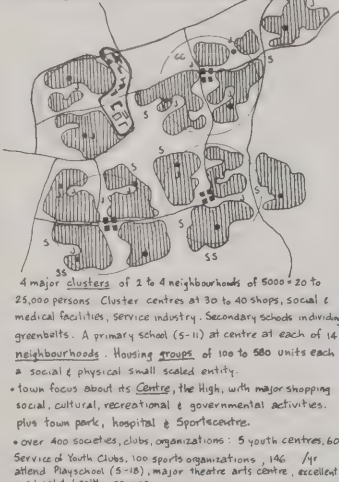 GG
S
S
S
S
S
S
S
S
S
SS
SS
4 major clusters of 2 to 4 neighbourhoods of 5000 = 20 to
25,000 persons Cluster centres at 30 to 40 shops, social &
medical facilities, service industry. Secondary schools individing
greenbelts. A primary school (5-11) at centre at each of 14
neighbourhoods. Housing groups of 100 to 580 units each
a social & physical small scaled entity.
• town focus about its Centre, the High, with major shopping
social, cultural, recreational & governmental activities.
plus town park, hospital & Sportscentre.
• over 400 societies, clubs, organizations: 5 youth centres, 60
Service of Youth Clubs, 100 sports organizations, 146 /yr
attend Playschool (5-18), major theatre arts centre, excellent